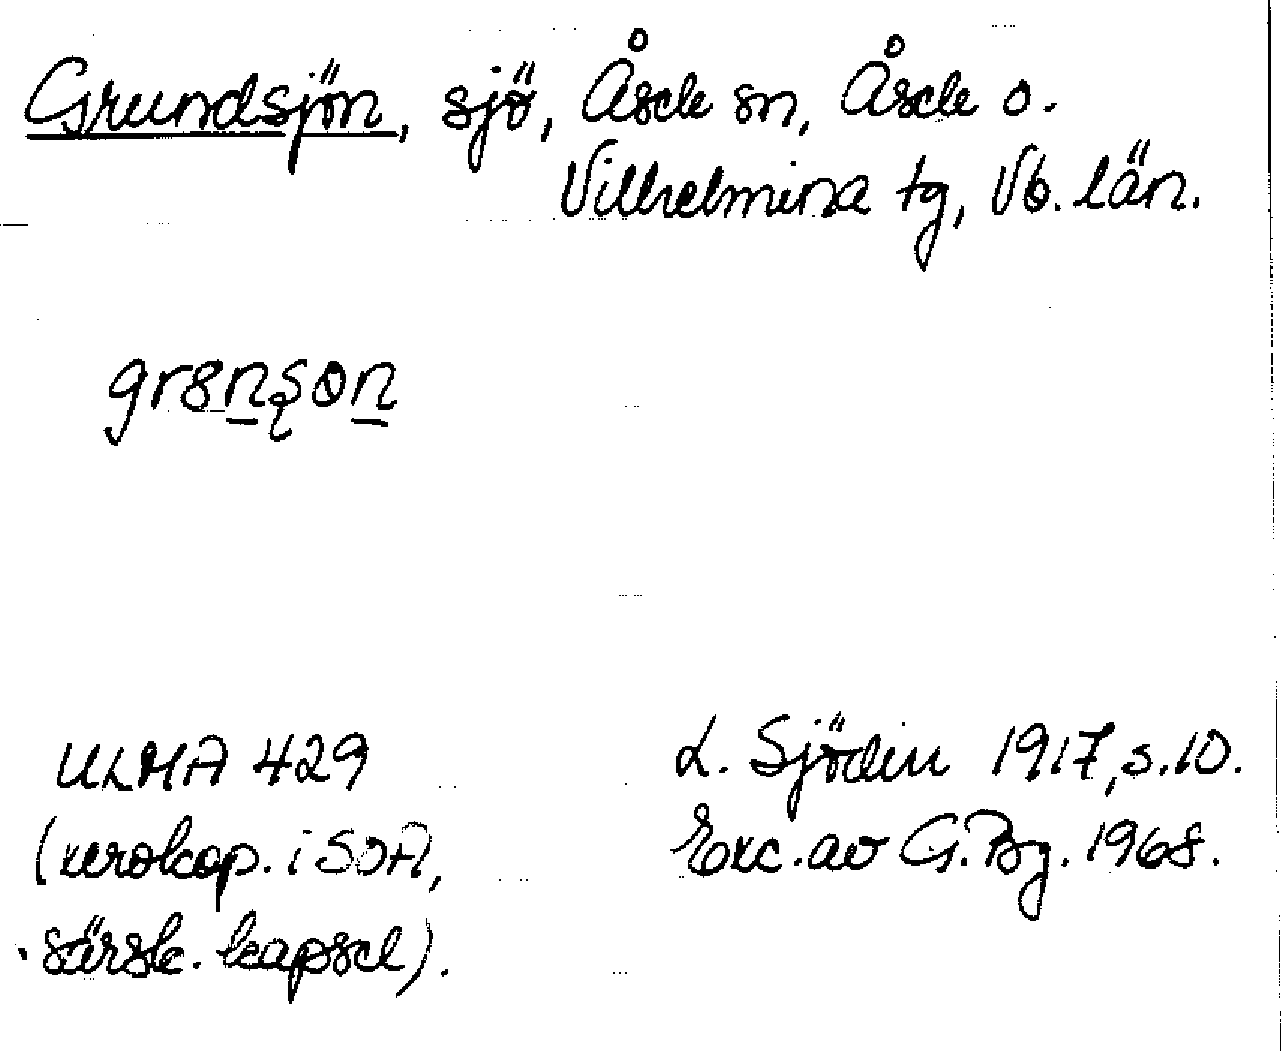 Grundsjön, sjö, Åsele sn, Åsele o.
Vilhelmina tg, Vb. län.
ULMA 429
L. Sjödin 1917, s. 10.
(xerokop. i SOA,
Exc. av G. Bg. 1968.
särsk. kapsel).